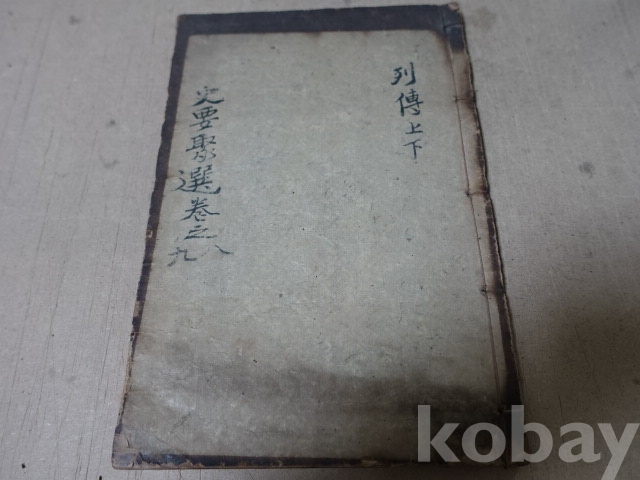 列傳上下
史要聚選卷之八九
kobay